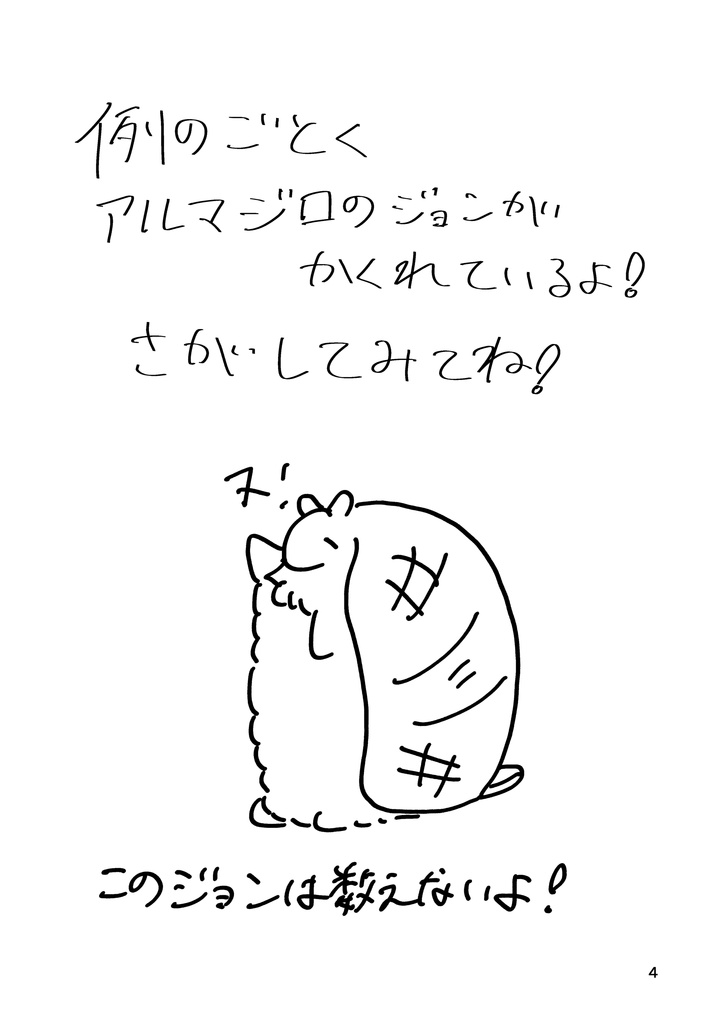 例のごとく
アルマジロのジョンが
かくれているよ!
さがしてみてね!
ヌ!
このジョンは数えないよ!
4